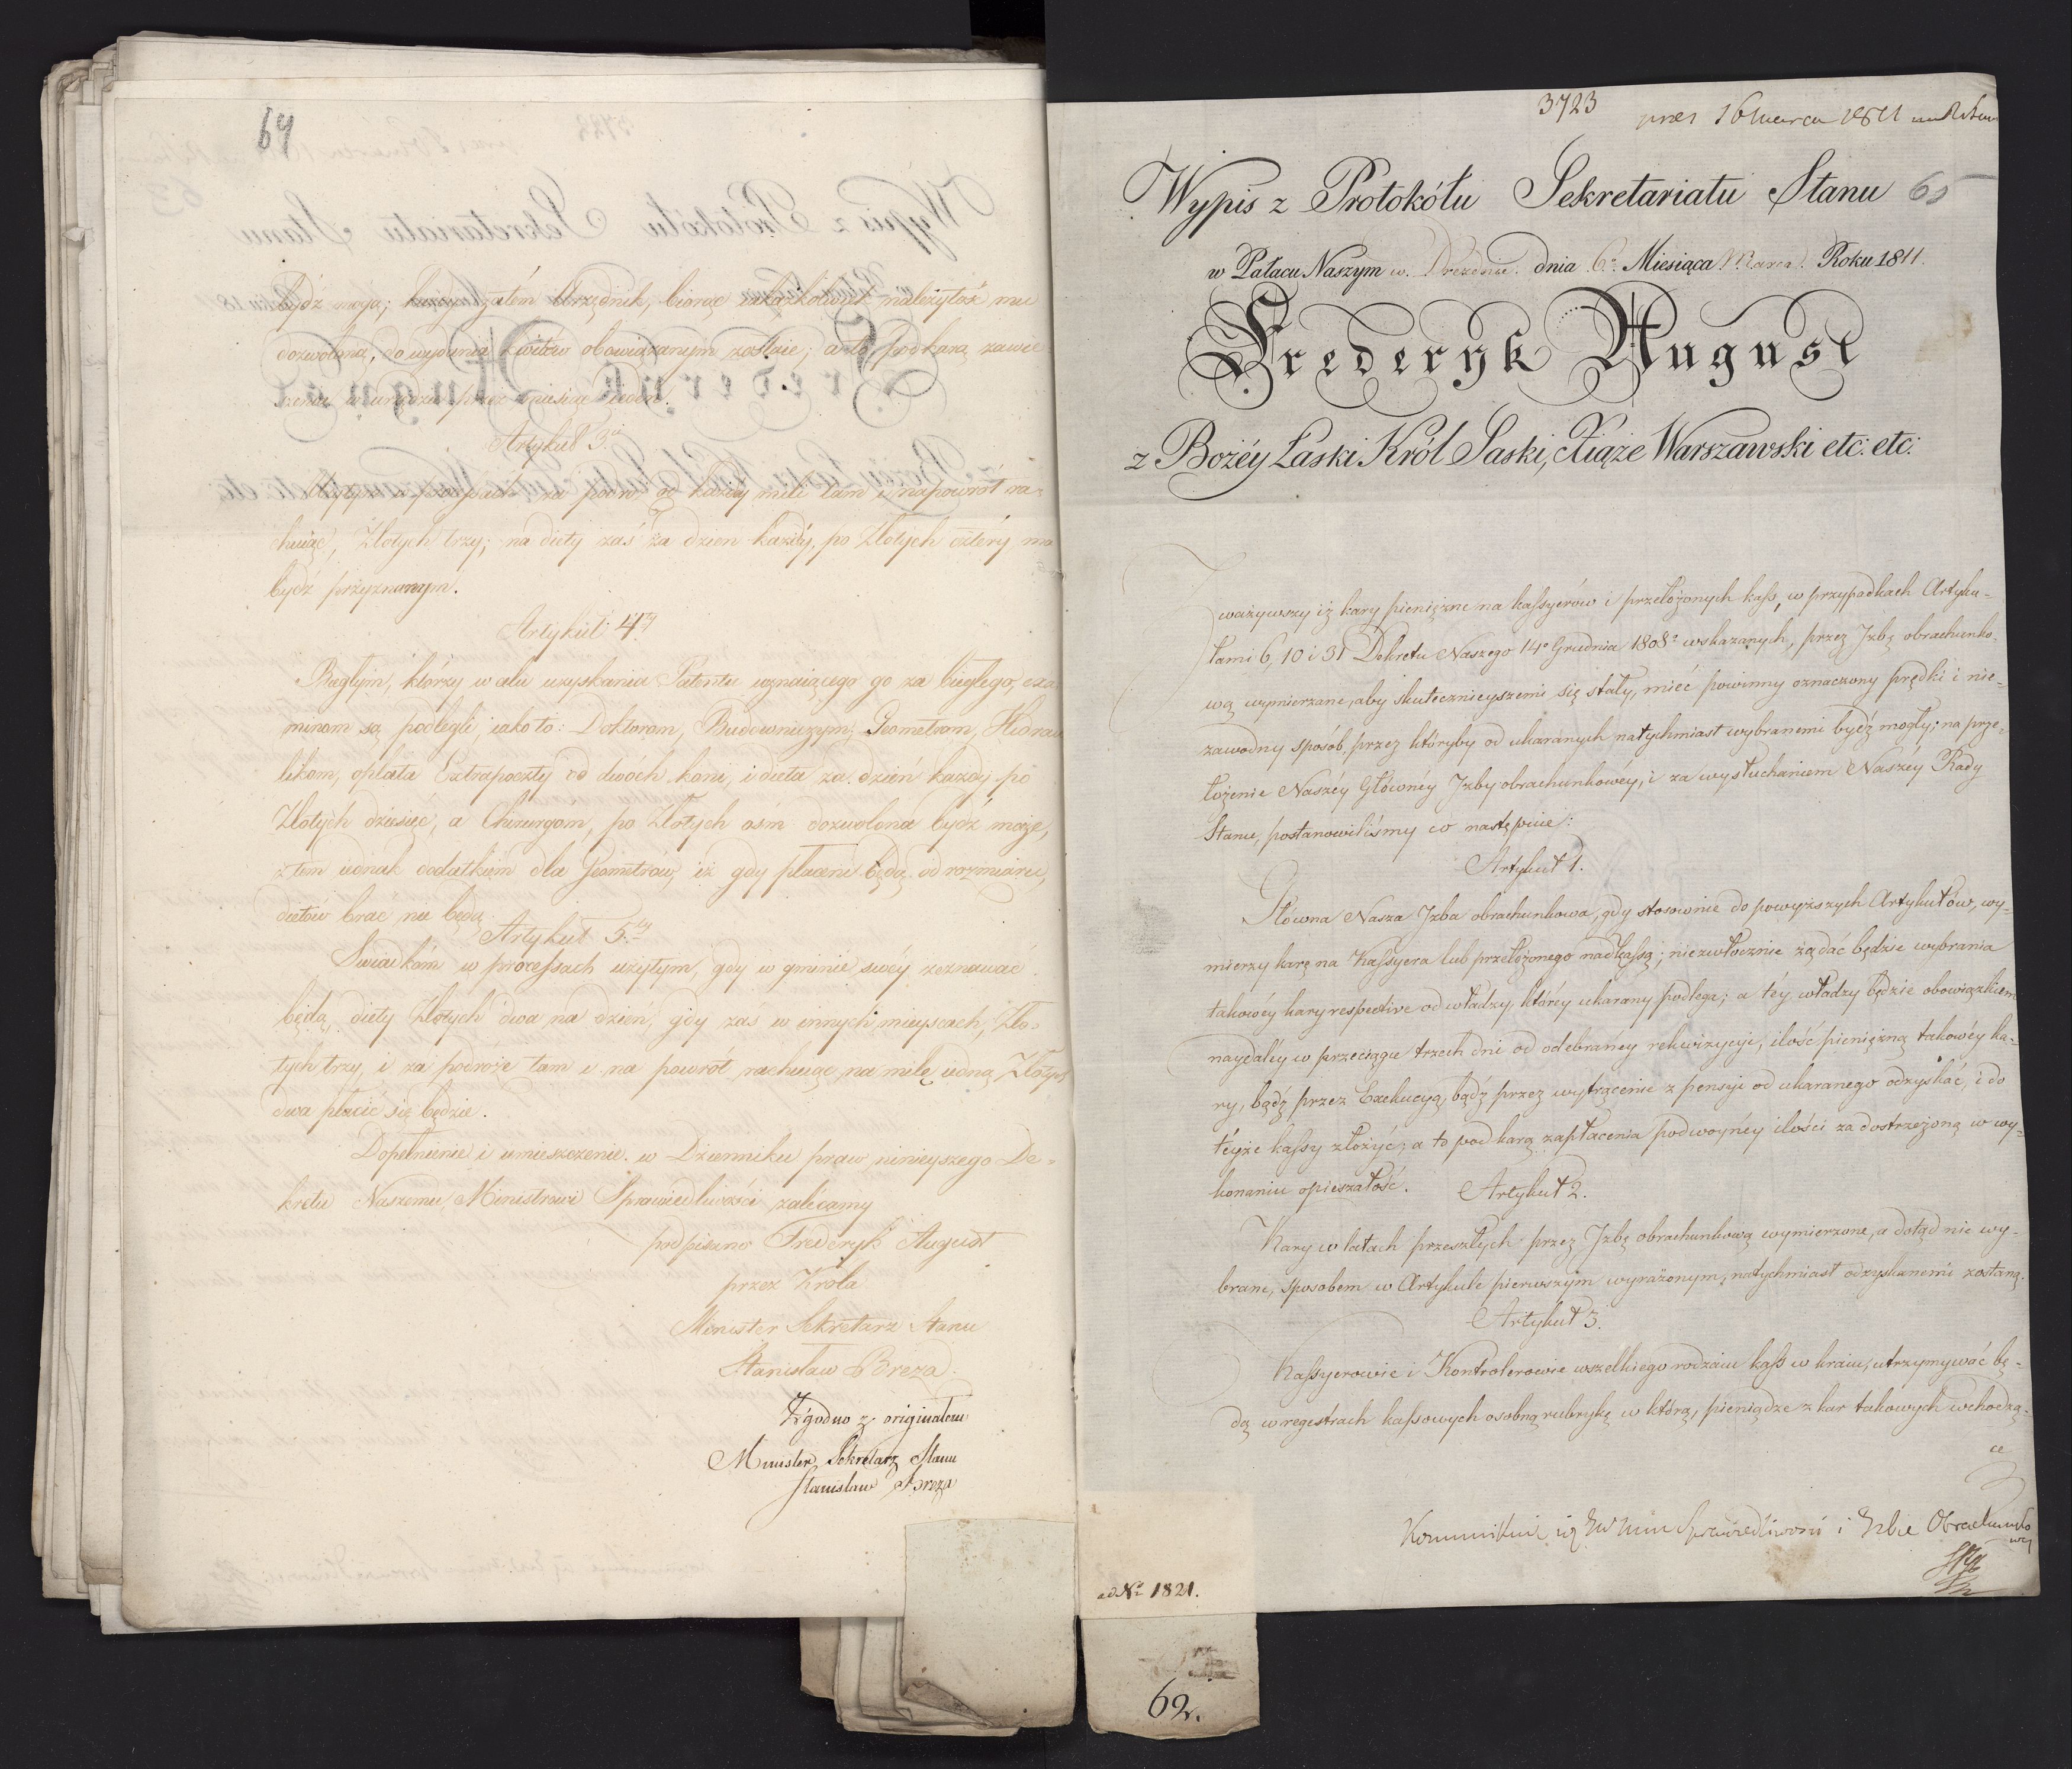 64
bydź mają; każdy zatém Urzędnik, biorąc iakążkolwiek należytość mu
dozwoloną, do wydania kwitów obowiązanym zostaie; a to pod karą zawie-
szenia w urzędzie przez miesiąc ieden.
Artykuł 3ci
na podróż od każdey mili tam i napowrót ra-
chuiąc, Złotych trzy; na diety zaś za dzień każdy, po Złotych cztéry ma
bydź przyznanym.
Artykuł 4ty
Biegłym, którzy w celu uzyskania Patentu uznaiącego go za biegłego, exa
minom są podlegli, iako to: Doktorom, Budowniczym, Geometrom, Hidrau
likom, opłata Extrapoczty od dwóch koni, i dieta za dzień każdy po
Złotych dziesięć, a Chirurgom, po Złotych osm dozwolona bydź może,
z tem iednak dodatkiem dla Geometrów, iż gdy płaceni będą od rozmiaru,
dietów brać nie będą.
Artykuł 5ty
Swiadkom w processach użytym, gdy w gminie swéy zeznawać
będą, diety Złotych dwa na dzień, gdy zaś w innych mieyscach, Zło-
tych trzy, i za podróże tam i na powrót rachuiąc na milę iedną Złotych
dwa płacić się będzie.
Dopełnienie i umieszczenie w Dzienniku praw ninieyszego De-
kretu Naszemu Ministrowi Sprawiedliwości zalecamy
podpisano Frederyk August
przez Króla
Minister Sekretarz Stanu
Stanisław Breza.
Zgodno z originałem
Minister Sekretarz Stanu
Stanisław Breza
3723
pres 16 Marca 1811
Wypis z Protokółu Sekretariatu Stanu 65
w Pałacu Naszym w. Dreznie. dnia 6o Miesiąca Marca. Roku 1811.
Frederyk August
z Bożéy Łaski Król Saski, Xiąże Warszawski etc: etc:
Zważywszy iż kary pieniężne na kassyerów i przełożonych kass, w przypadkach Artyku-
łami 6, 10 i 31 Dekretu Naszego 14o Grudnia 1808o wskazanych, przez Jzbę obrachunko-
wą wymierzane, aby skutecznieyszemi się stały, mieć powinny oznaczony prędki i nie-
zawodny sposób, przez któryby od ukaranych natychmiast wybranemi bydź mogły; na prze-
łożenie Naszéy Głównéy Jzby obrachunkowéy, i za wysłuchaniem Naszéy Rady
Stanu, postanowiliśmy co następuie:
Artykuł 1.
Główna Nasza Jzba obrachunkowa, gdy stosownie do powyższych Artykułów, wy-
mierzy karę na Kassyera lub przełożonego nad kassą; niezwłocznie żądać będzie wybrania
takowéy kary respective od władzy, któréy ukarany podlega; a téy władzy będzie obowiązkiem
naydaléy w przeciągu trzech dni od odebraney rekwizycyi, ilość pieniężną takowéy ka-
ry, bądź przez Exekucyą, bądź przez wytrącenie z pensyi od ukaranego odzyskać, i do
téyże kassy złożyć; a to pod karą zapłacenia podwoynéy ilości za dostrzeżoną w wy-
konaniu opieszałość.
Artykuł 2.
Kary w latach przeszłych przez Jzbę obrachunkową wymierzone, a dotąd nie wy-
brane, sposobem w Artykule pierwszym wyrażonym, natychmiast odzyskanemi zostaną.
Artykuł 3.
Kassyerowie i Kontrolerowie wszelkiego rodzaiu kass w kraiu, utrzymywać bę-
dą w regestrach kassowych osobną rubrykę w którą, pieniądze z kar takowych wchodzą-
ce
Kommunikuie się Min Sprawiedliwości i Izbie Obrachunko
wey
ad No 1821.
62.